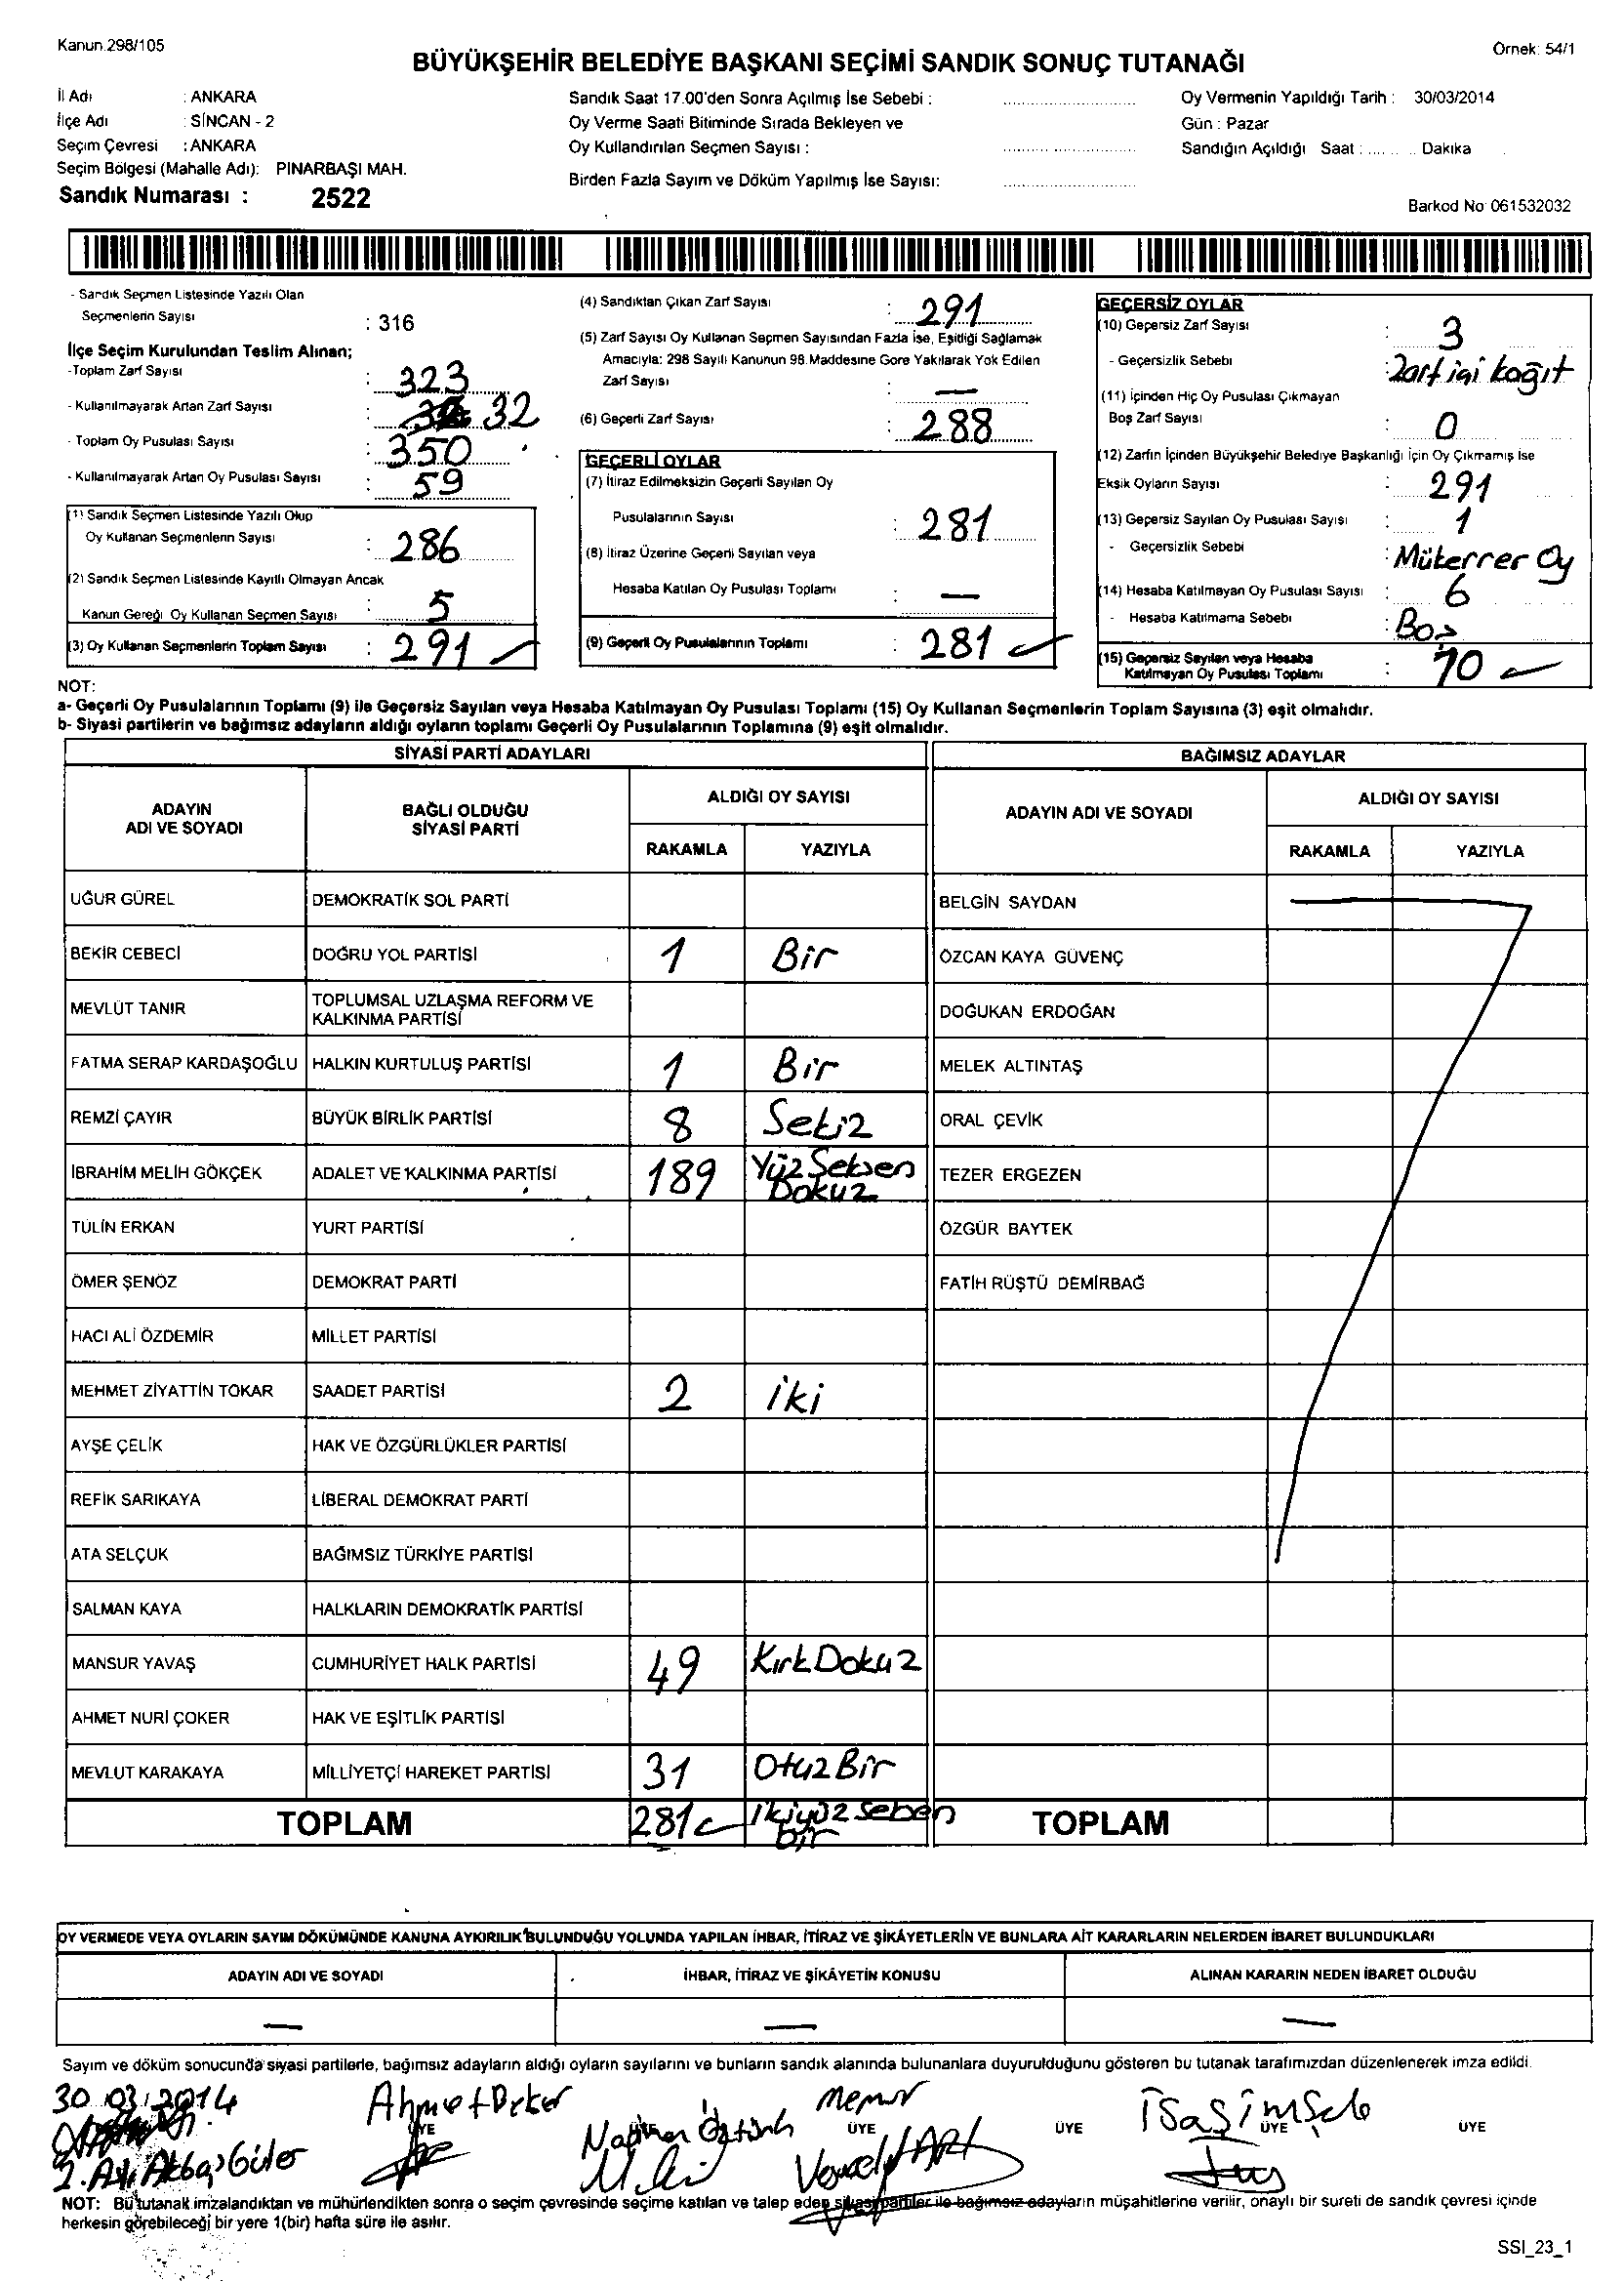 Kanun.298/105
Örnek: 54/1
BÜYÜKŞEHİR BELEDİYE BAŞKANI SEÇİMİ SANDIK SONUÇ TUTANAĞI
İl Adı : ANKARA
İlçe Adı : SİNCAN - 2
Seçim Çevresi : ANKARA
Seçim Bölgesi (Mahalle Adı): PINARBAŞI MAH.
Sandık Numarası : 2522
Sandık Saat 17.00'den Sonra Açılmış İse Sebebi :
Oy Verme Saati Bitiminde Sırada Bekleyen ve
Oy Kullandırılan Seçmen Sayısı :
Birden Fazla Sayım ve Döküm Yapılmış İse Sayısı:
Oy Vermenin Yapıldığı Tarih : 30/03/2014
Gün : Pazar
Sandığın Açıldığı Saat : ...... .. Dakika
Barkod No 061532032
- Sandık Seçmen Listesinde Yazılı Olan
Seçmenlerin Sayısı : 316
İlçe Seçim Kurulundan Teslim Alınan;
-Toplam Zarf Sayısı : 323
- Kullanılmayarak Artan Zarf Sayısı : 32
- Toplam Oy Pusulası Sayısı : 350
- Kullanılmayarak Artan Oy Pusulası Sayısı : 59
(1) Sandık Seçmen Listesinde Yazılı Olup
Oy Kullanan Seçmenlerin Sayısı : 286
(2) Sandık Seçmen Listesinde Kayıtlı Olmayan Ancak
Kanun Gereği Oy Kullanan Seçmen Sayısı : 5
(3) Oy Kullanan Seçmenlerin Toplam Sayısı : 291
(4) Sandıktan Çıkan Zarf Sayısı : 291
(5) Zarf Sayısı Oy Kullanan Seçmen Sayısından Fazla İse, Eşitliği Sağlamak
Amacıyla: 298 Sayılı Kanunun 98.Maddesine Göre Yakılarak Yok Edilen
Zarf Sayısı : —
(6) Geçerli Zarf Sayısı : 288
GEÇERLİ OYLAR
(7) İtiraz Edilmeksizin Geçerli Sayılan Oy
Pusulalarının Sayısı : 281
(8) İtiraz Üzerine Geçerli Sayılan veya
Hesaba Katılan Oy Pusulası Toplamı : —
(9) Geçerli Oy Pusulalarının Toplamı : 281
GEÇERSİZ OYLAR
(10) Geçersiz Zarf Sayısı : 3
- Geçersizlik Sebebi : Zarf içi kağıt
(11) İçinden Hiç Oy Pusulası Çıkmayan
Boş Zarf Sayısı : 0
(12) Zarfın İçinden Büyükşehir Belediye Başkanlığı İçin Oy Çıkmamış İse
Eksik Oyların Sayısı : 291
(13) Geçersiz Sayılan Oy Pusulası Sayısı : 1
- Geçersizlik Sebebi : Mükerrer Oy
(14) Hesaba Katılmayan Oy Pusulası Sayısı : 6
- Hesaba Katılmama Sebebi : Boş
(15) Geçersiz Sayılan veya Hesaba
Katılmayan Oy Pusulası Toplamı : 10
NOT:
a- Geçerli Oy Pusulalarının Toplamı (9) ile Geçersiz Sayılan veya Hesaba Katılmayan Oy Pusulası Toplamı (15) Oy Kullanan Seçmenlerin Toplam Sayısına (3) eşit olmalıdır.
b- Siyasi partilerin ve bağımsız adayların aldığı oyların toplamı Geçerli Oy Pusulalarının Toplamına (9) eşit olmalıdır.
SİYASİ PARTİ ADAYLARI
ADAYIN ADI VE SOYADI BAĞLI OLDUĞU SİYASİ PARTİ ALDIĞI OY SAYISI
RAKAMLA YAZIYLA
UĞUR GÜREL DEMOKRATİK SOL PARTİ
BEKİR CEBECİ DOĞRU YOL PARTİSİ 1 Bir
MEVLÜT TANIR TOPLUMSAL UZLAŞMA REFORM VE KALKINMA PARTİSİ
FATMA SERAP KARDAŞOĞLU HALKIN KURTULUŞ PARTİSİ 1 Bir
REMZİ ÇAYIR BÜYÜK BİRLİK PARTİSİ 8 Sekiz
İBRAHİM MELİH GÖKÇEK ADALET VE KALKINMA PARTİSİ 189 Yüz Seksen Dokuz
TÜLİN ERKAN YURT PARTİSİ
ÖMER ŞENÖZ DEMOKRAT PARTİ
HACI ALİ ÖZDEMİR MİLLET PARTİSİ
MEHMET ZİYATTİN TOKAR SAADET PARTİSİ 2 iki
AYŞE ÇELİK HAK VE ÖZGÜRLÜKLER PARTİSİ
REFİK SARIKAYA LİBERAL DEMOKRAT PARTİ
ATA SELÇUK BAĞIMSIZ TÜRKİYE PARTİSİ
SALMAN KAYA HALKLARIN DEMOKRATİK PARTİSİ
MANSUR YAVAŞ CUMHURİYET HALK PARTİSİ 49 Kırk Dokuz
AHMET NURİ ÇOKER HAK VE EŞİTLİK PARTİSİ
MEVLUT KARAKAYA MİLLİYETÇİ HAREKET PARTİSİ 31 Otuz Bir
TOPLAM 281 ikiyüz seksen bir
BAĞIMSIZ ADAYLAR
ADAYIN ADI VE SOYADI ALDIĞI OY SAYISI
RAKAMLA YAZIYLA
BELGİN SAYDAN
ÖZCAN KAYA GÜVENÇ
DOĞUKAN ERDOĞAN
MELEK ALTINTAŞ
ORAL ÇEVİK
TEZER ERGEZEN
ÖZGÜR BAYTEK
FATİH RÜŞTÜ DEMİRBAĞ
TOPLAM
OY VERMEDE VEYA OYLARIN SAYIM DÖKÜMÜNDE KANUNA AYKIRILIK BULUNDUĞU YOLUNDA YAPILAN İHBAR, İTİRAZ VE ŞİKÂYETLERİN VE BUNLARA AİT KARARLARIN NELERDEN İBARET BULUNDUKLARI
ADAYIN ADI VE SOYADI İHBAR, İTİRAZ VE ŞİKÂYETİN KONUSU ALINAN KARARIN NEDEN İBARET OLDUĞU
— — —
Sayım ve döküm sonucunda siyasi partilerle, bağımsız adayların aldığı oyların sayılarını ve bunların sandık alanında bulunanlara duyurulduğunu gösteren bu tutanak tarafımızdan düzenlenerek imza edildi.
30.03.2014 Ahmet memur
ÜYE ÜYE ÜYE ÜYE ÜYE
NOT: Bu tutanak imzalandıktan ve mühürlendikten sonra o seçim çevresinde seçime katılan ve talep eden siyasi partiler ile bağımsız adayların müşahitlerine verilir, onaylı bir sureti de sandık çevresi içinde
herkesin görebileceği bir yere 1(bir) hafta süre ile asılır.
SSI_23_1